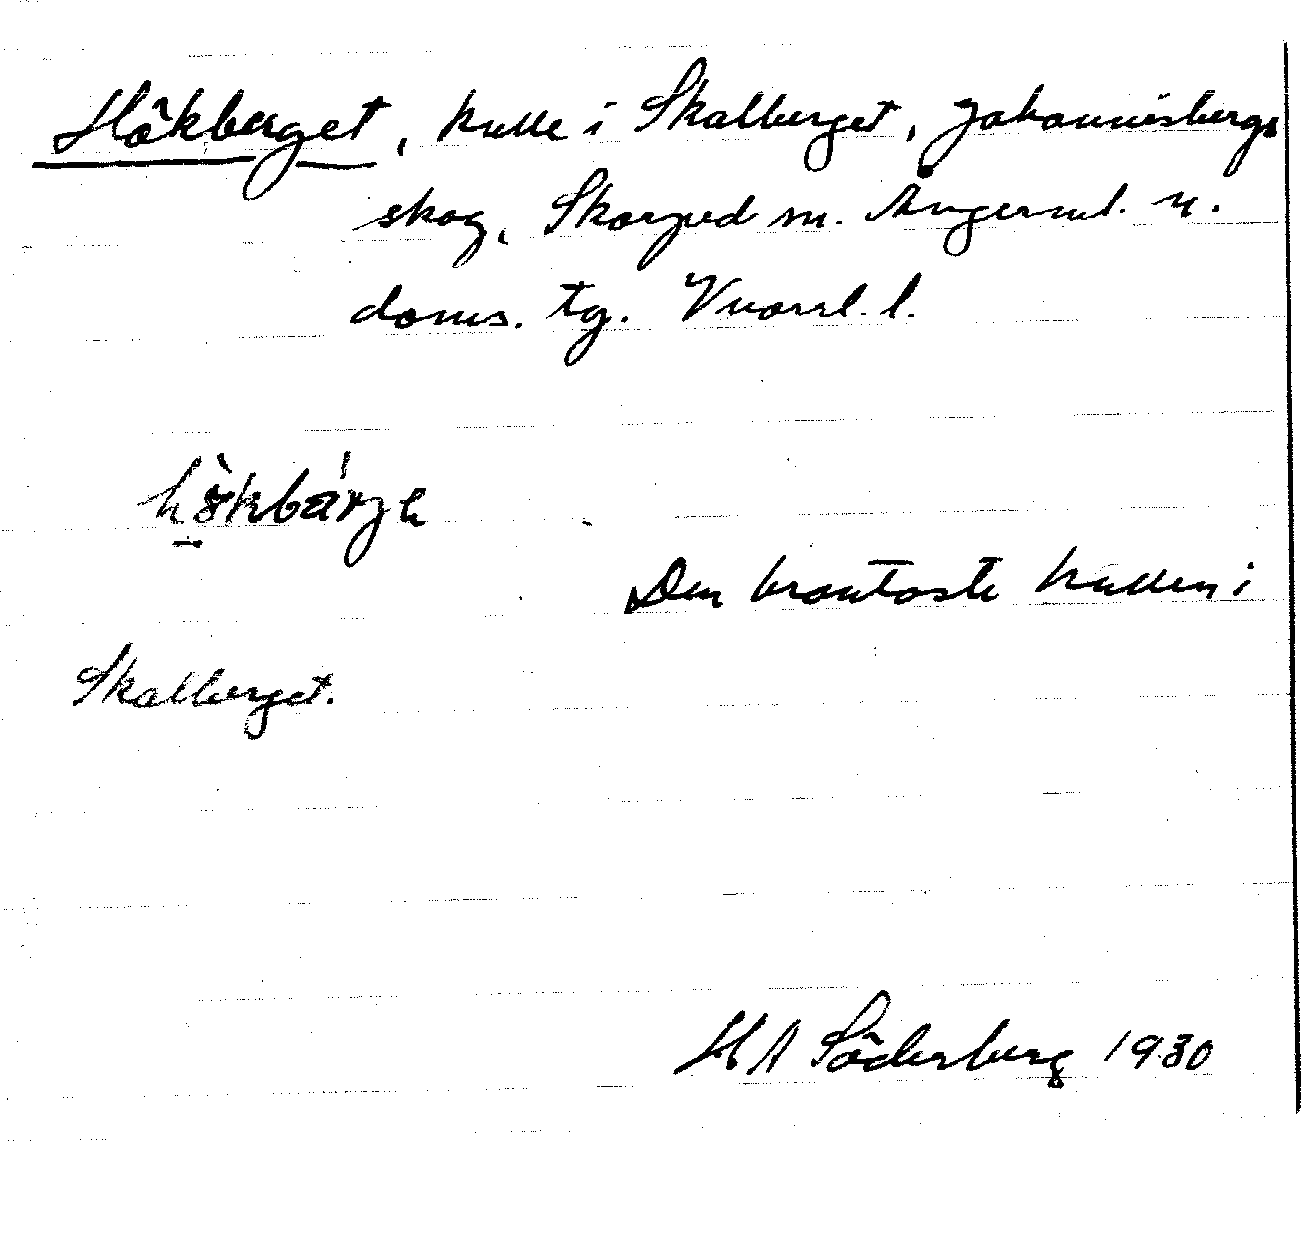 Hökberget, kulle i Skalberget, Johannisbergs
skog, Skorped sn. Ångerml. n.
doms. tg. Vnorrl. l.
hökbärʒe
Den brantaste kullen i
Skalberget.
H A Söderberg 1930